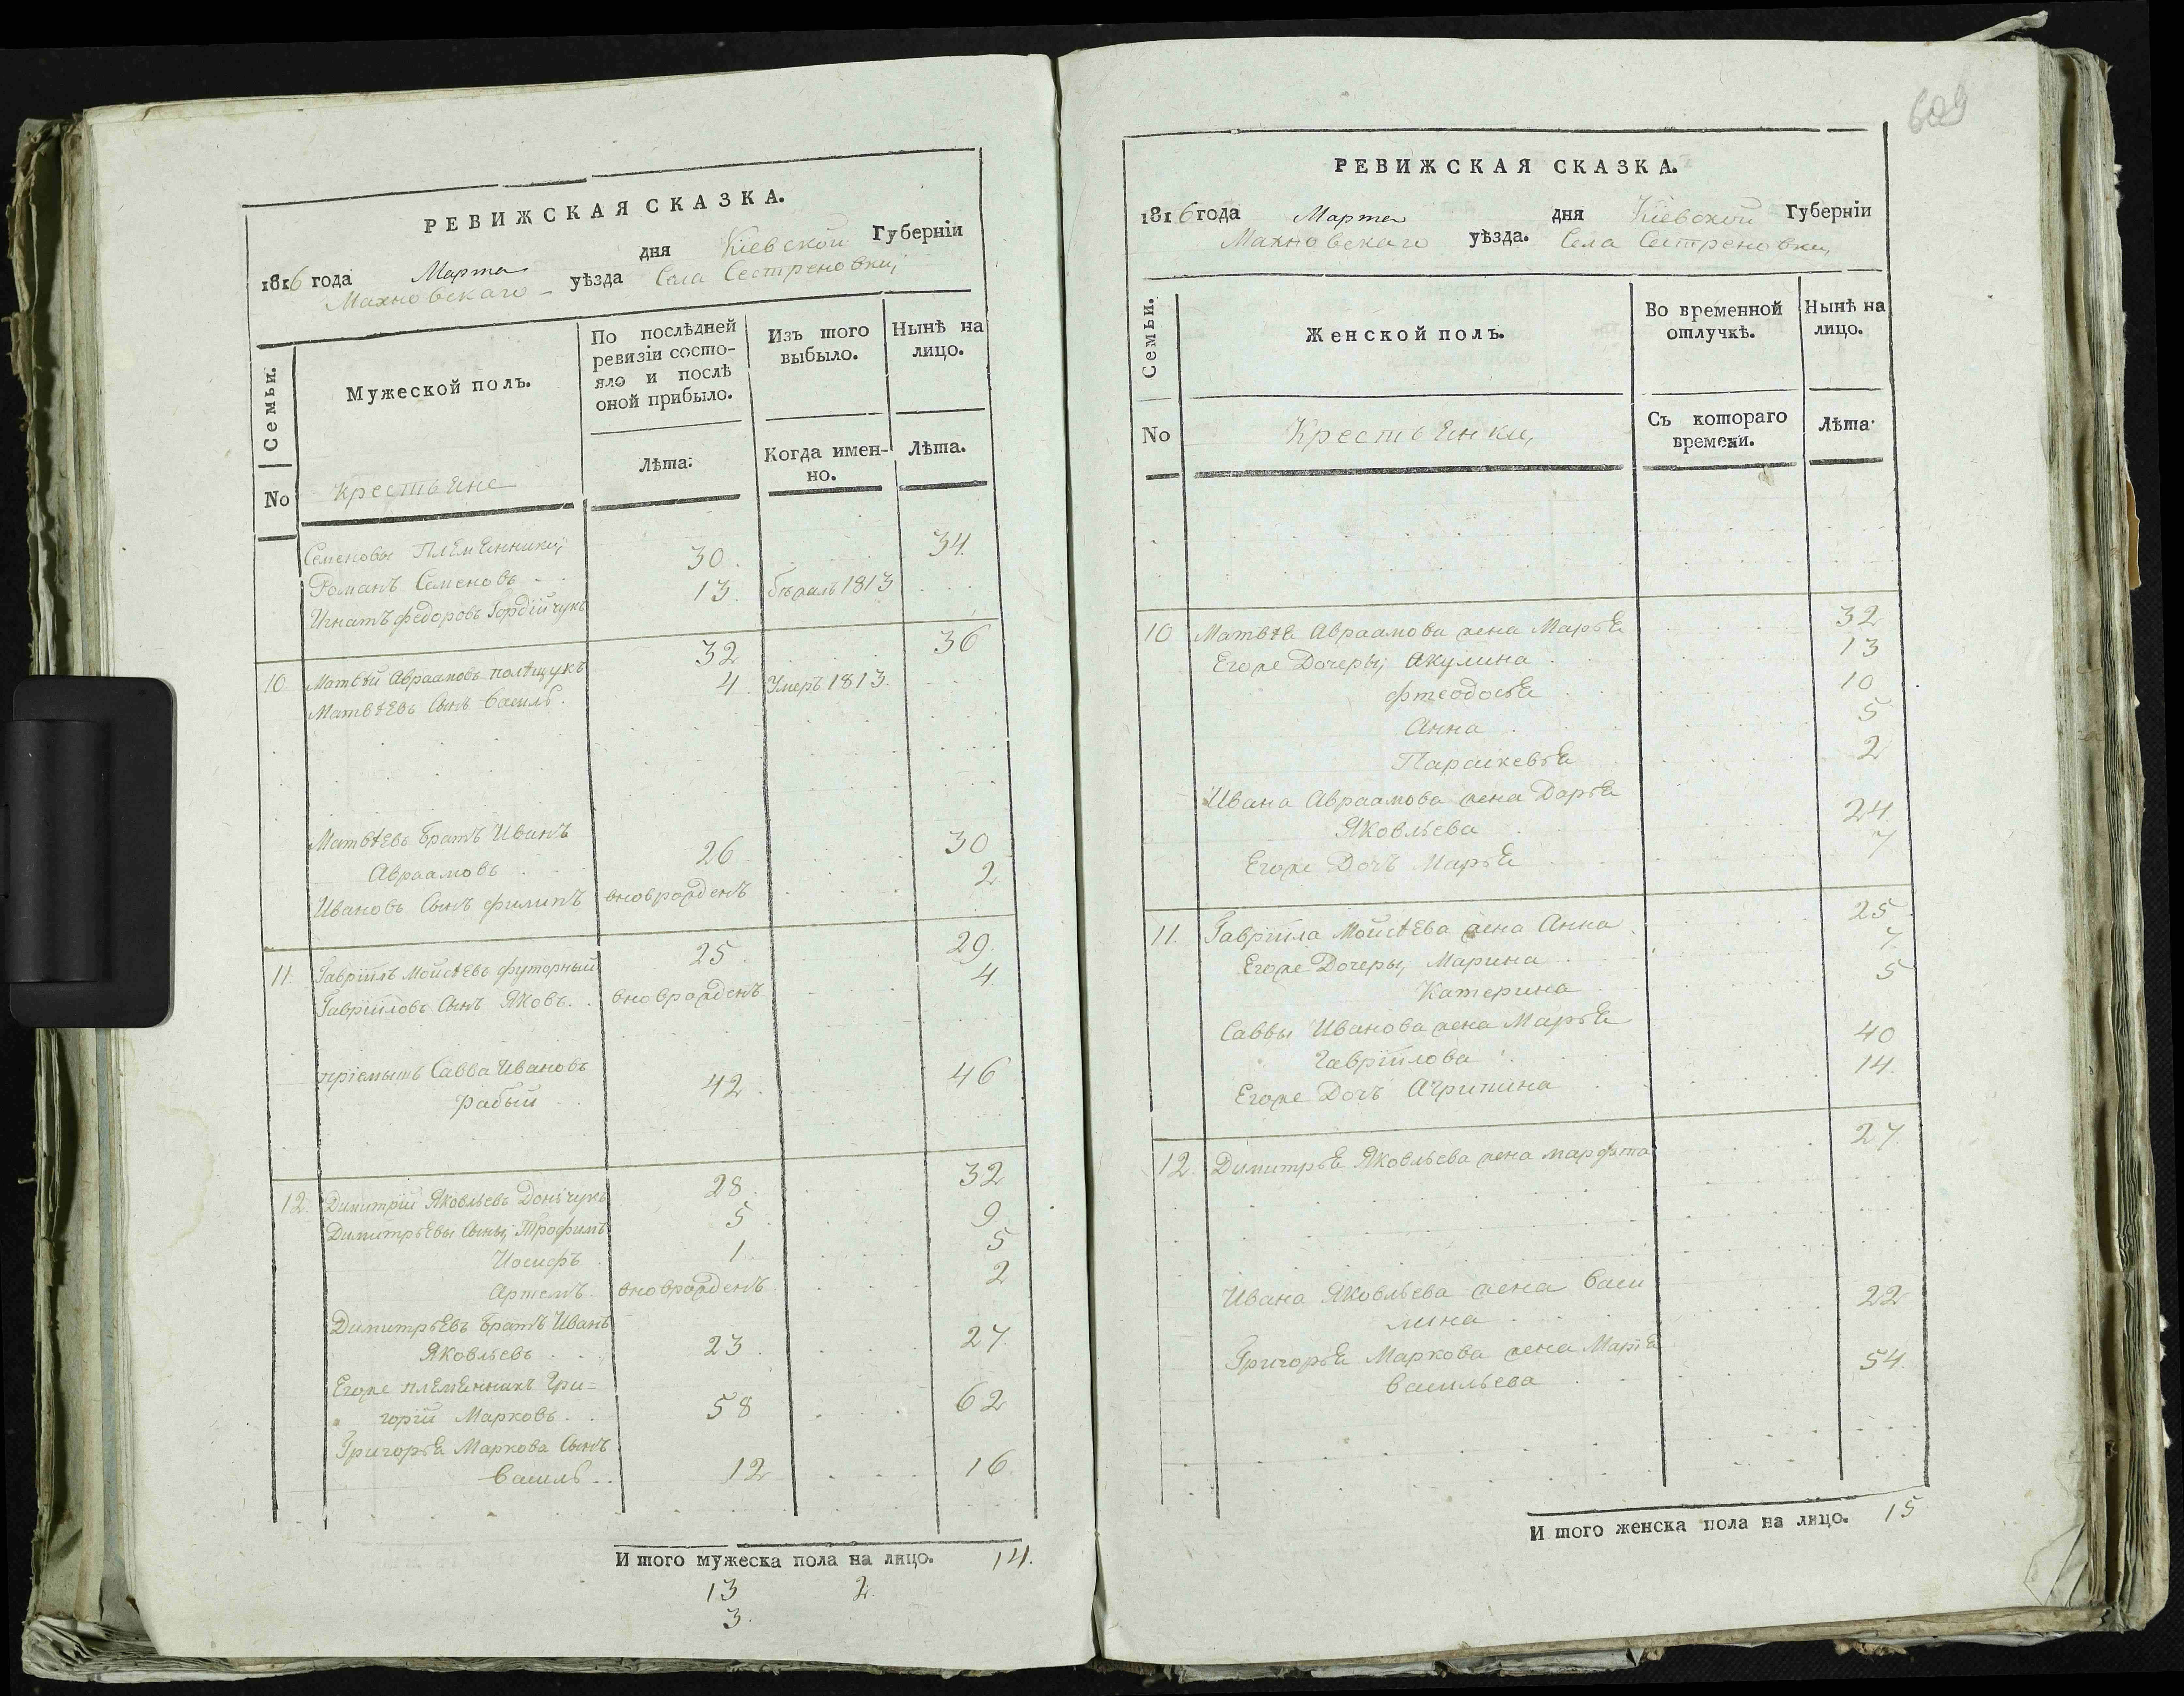 РЕВИЖСКАЯ СКАЗКА.
1816 года Марта дня Кіевской Губерніи
Махновскаго уѣзда Села Сестреновки,
Семьи.
Мужеской полъ.
По послѣдней ревизіи состо-
яло и послѣ оной прибыло.
Изъ того выбыло.
Нынѣ на лицо.
No
крестьяне
Лѣта.
Когда имен-
но.
Лѣта.
Семеновы племянники,
Романъ Семеновъ 30 34.
Игнатъ Федоровъ Гордійчукъ 13. бѣжалъ 1813
10 Матвѣй Авраамовъ полѣщукъ 32 36
Матвѣевъ Сынъ Василь. 4. Умеръ 1813.
Матвѣевъ братъ Иванъ
Авраамовъ 26 30
Ивановъ Сынъ филипъ вноврожденъ 2
11. Гавріилъ Мойсѣевъ футорный 25 29.
Гавріиловъ Сынъ Яковъ. вноврожденъ 4
пріемышъ Савва Ивановъ
рабый 42. 46
12. Димитрій Яковльевъ Донѣчукъ 28. 32
Димитрьевы Сыны, Трофимъ 5 9
Иосифъ 1. 5
Артемъ. вноврожденъ 2
Димитрьевъ братъ Иванъ
Яковльевъ 23. 27.
Егоже племянникъ Гри=
горій Марковъ. 58 62
Григорья Маркова Сынъ
Василь 12 16
И того мужеска пола на лицо. 14.
13 2.
3.
609
РЕВИЖСКАЯ СКАЗКА.
1816 года Марта дня Кіевской Губерніи
Махновскаго уѣзда. Села Сестреновки,
Семьи.
Женской полъ.
Во временной отлучкѣ.
Нынѣ на лицо.
No
Крестьянки,
Съ котораго времени.
Лѣта.
10 Матвѣя Авраамова жена Марья 32
Егоже Дочеры, Акулина 13
фтеодосья 10
Анна 5
Параскевья 2
Ивана Авраамова жена Дарья
Яковльева 24
Егоже Дочъ Марья 7
11. Гавріила Мойсѣева жена Анна 25
Егоже Дочеры, Марина 7.
Катерина 5
Саввы Иванова жена Марья
Гавріилова 40
Егоже Дочъ Агрипина 14.
12. Димитрья Яковльева жена марфта 27.
Ивана Яковльева жена Васи
лина 22
Григорья Маркова жена Марія
Васильева 54.
И того женска пола на лицо. 15